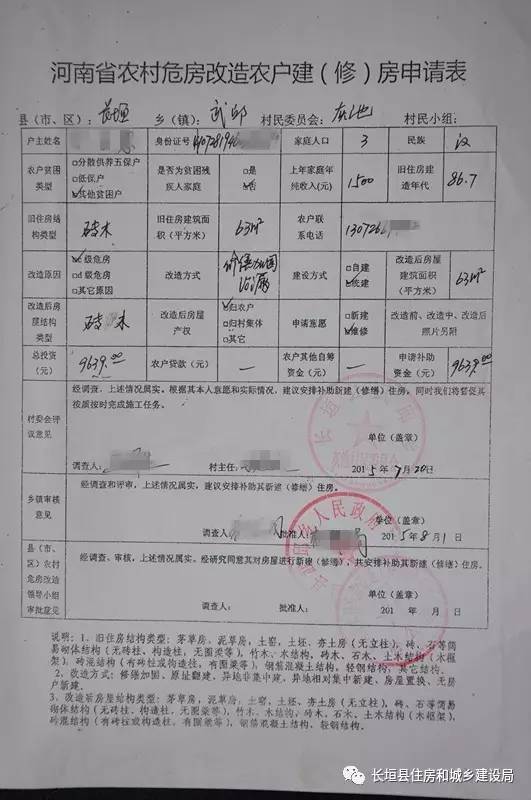 河南省农村危房改造农户建（修）房申请表
县（市、区）：长垣 乡（镇）：武邱 村民委员会： 村民小组：
户主姓名 身份证号 家庭人口 3 民族 汉
农户贫困类型 □分散供养五保户 □低保户 ☑其他贫困户 是否为贫困残疾人家庭 □是 ☑否 上年家庭年纯收入(元) 1500 旧住房建造年代 86.7
旧住房结构类型 砖木 旧住房建筑面积（平方米） 63m² 农户联系电话
改造原因 ☑c级危房 □d级危房 □其它原因 改造方式 修缮加固 建设方式 □自建 ☑统建 改造后房屋建筑面积（平方米） 63m²
改造后房屋结构类型 砖木 改造后房屋产权 ☑归农户 □归村集体 □其它 申请意愿 □新建 ☑维修 改造前、改造中、改造后照片另附
总投资(元) 9639.00 农户贷款（元） — 农户其他自筹资金（元） — 申请补助资金（元） 9639.00
村委会评议意见
经调查，上述情况属实。根据其本人意愿和实际情况，建议安排补助新建（修缮）住房。同时我们将督促其按质按时完成施工任务。
单位（盖章）
调查人： 村主任： 2015年7月20日
乡镇审核意见
经调查和评审，上述情况属实，建议安排补助其新建（修缮）住房。
单位（盖章）
调查人： 批准人： 2015年8月1日
县（市、区）农村危房改造领导小组审批意见
经调查、审核，上述情况属实。经研究同意其对房屋进行新建（修缮），共安排补助其新建（修缮）住房。
单位（盖章）
调查人： 批准人： 201 年 月 日
说明：1、旧住房结构类型：茅草房，泥草房，土窑，土坯、夯土房（无立柱），砖、石等简
易砌体结构（无砖柱、构造柱，无圈梁等），竹木、木结构，砖木、石木、土木结构（木框
架），砖混结构（有砖柱或构造柱，有圈梁等），钢筋混凝土结构，轻钢结构，其它。
2、改造方式：修缮加固、原址翻建、异地非集中建、异地相对集中新建、房屋置换、无房
户新建。
3、改造后房屋结构类型：茅草房，泥草房，土窑，土坯、夯土房（无立柱），砖、石等简易
砌体结构（无砖柱、构造柱，无圈梁等），竹木、木结构，砖木、石木、土木结构（木框架），
砖混结构（有砖柱或构造柱，有圈梁等），钢筋混凝土结构，轻钢结构。
长垣县住房和城乡建设局